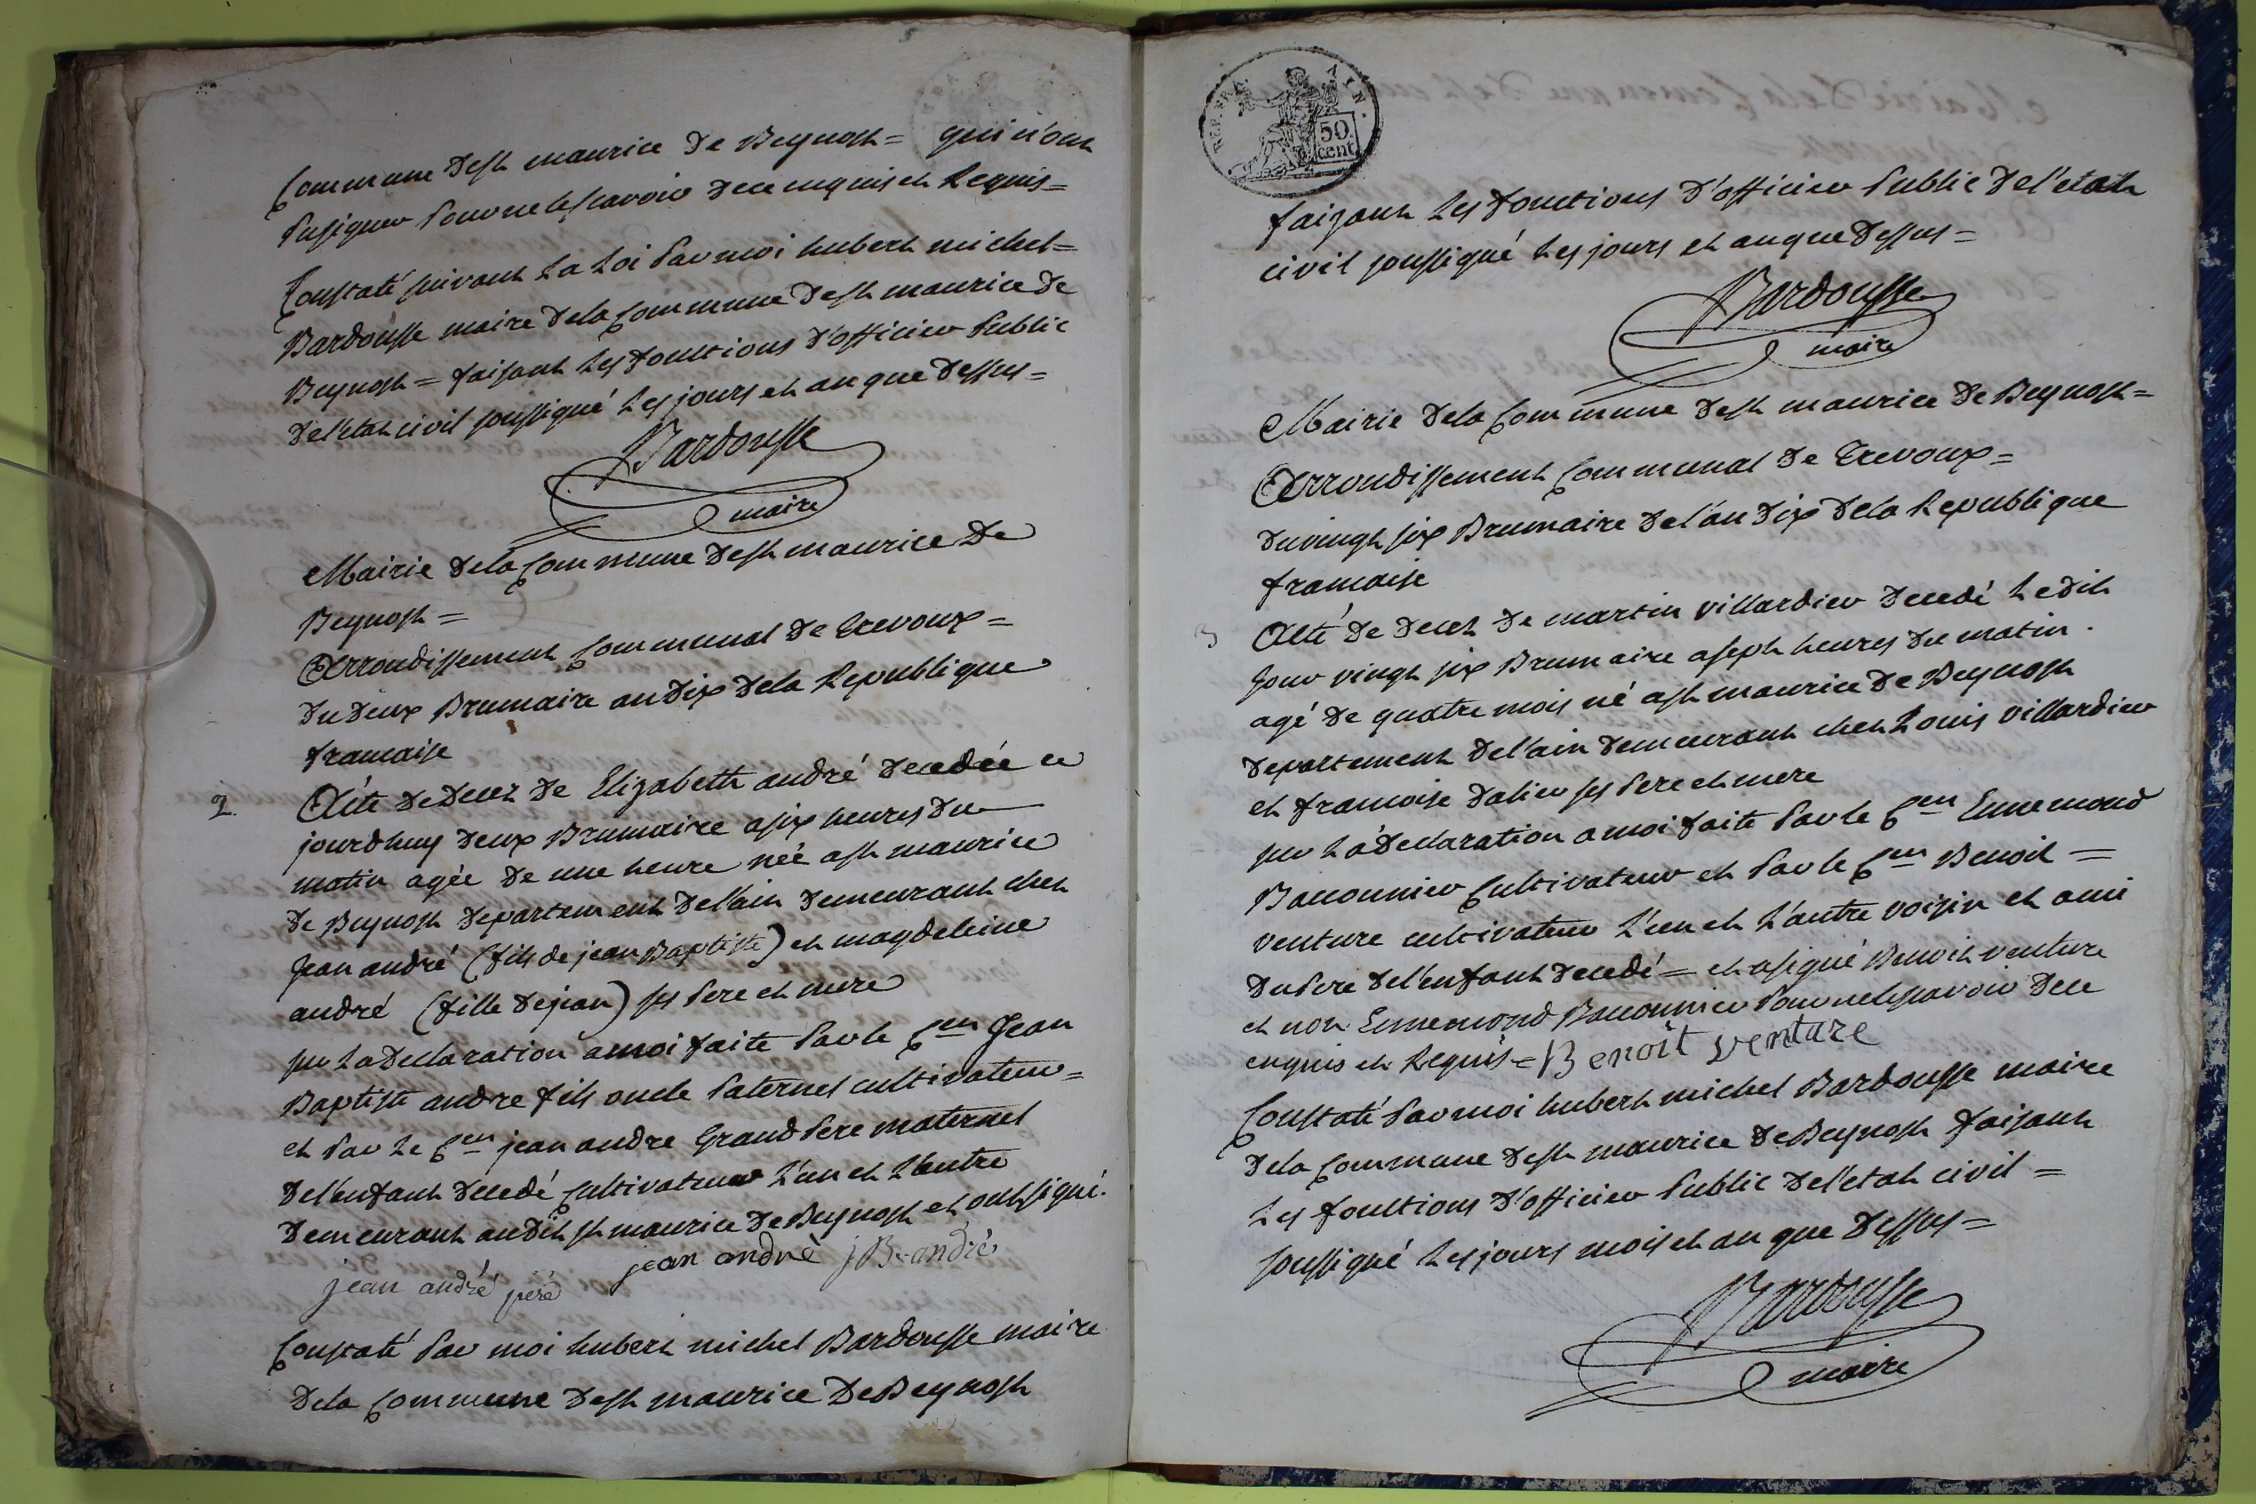 Commune de st maurice de Beynost = qui n'ont
su signer pour ne le scavoir de ce enquis et Requis =
Constaté suivant La Loi par moi hubert michel =
Bardousse maire de la Commune de st maurice de
Beynost = faisant Les fonctions d'officier public
de l'etat civil soussigné Les jours et an que dessus =
Bardousse
maire
Mairie de la Commune de st maurice de
Beynost =
Arrondissement Communal de Trevoux =
du deux Brumaire an dix de la Republique
francaise
2 Acte de decez de Elizabeth andré decedée ce
jourdhuy deux Brumaire a six heures du
matin agée de une heure née a st maurice
de Beynost departement de l'ain demeurant chez
Jean andré (fils de jean Baptiste) et magdeleine
andré (fille de jean) ses pere et mere
sur La declaration a moi faite par le Cen Jean
Baptiste andre fils oncle paternel cultivateur =
et par Le Cen jean andre Grand pere maternel
de l'enfant decedé Cultivateur L'un et L'autre
demeurant au dit st maurice de Beynost et ont signé.
jean andré père jean andrè j B. andré
Constaté par moi hubert michel Bardousse maire
de la Commune de st maurice de Beynost
REP. FRA. AIN.
50
cent.
faisant Les fonctions d'officier public de l'etat
civil soussigné Les jours et an que dessus =
Bardousse
maire
Mairie de la Commune de st maurice de Beynost =
Arrondissement Communal de Trevoux =
du vingt six Brumaire de l'an dix de la Republique
francaise
3 Acte de decez de martin villardier decedé Le dit
jour vingt six Brumaire a sept heures du matin.
agé de quatre mois né a st maurice de Beynost
departement de l'ain demeurant chez Louis villardier
et francoise dalier ses pere et mere
sur La declaration a moi faite par le Cen Ennemond
Baconnier Cultivateur et par le Cen Benoit =
venture cultivateur L'un et L'autre voisin et ami
du pere de l'enfant decedé = et a signé Benoit venture
et non Ennemond Baconnier pour ne le scavoir de ce
enquis et Requis = Benoît venture
Constaté par moi hubert michel Bardousse maire
de la Commune de st maurice de Beynost faisant
Les fonctions d'officier public de l'etat civil =
soussigné Les jours mois et an que dessus =
Bardousse
maire